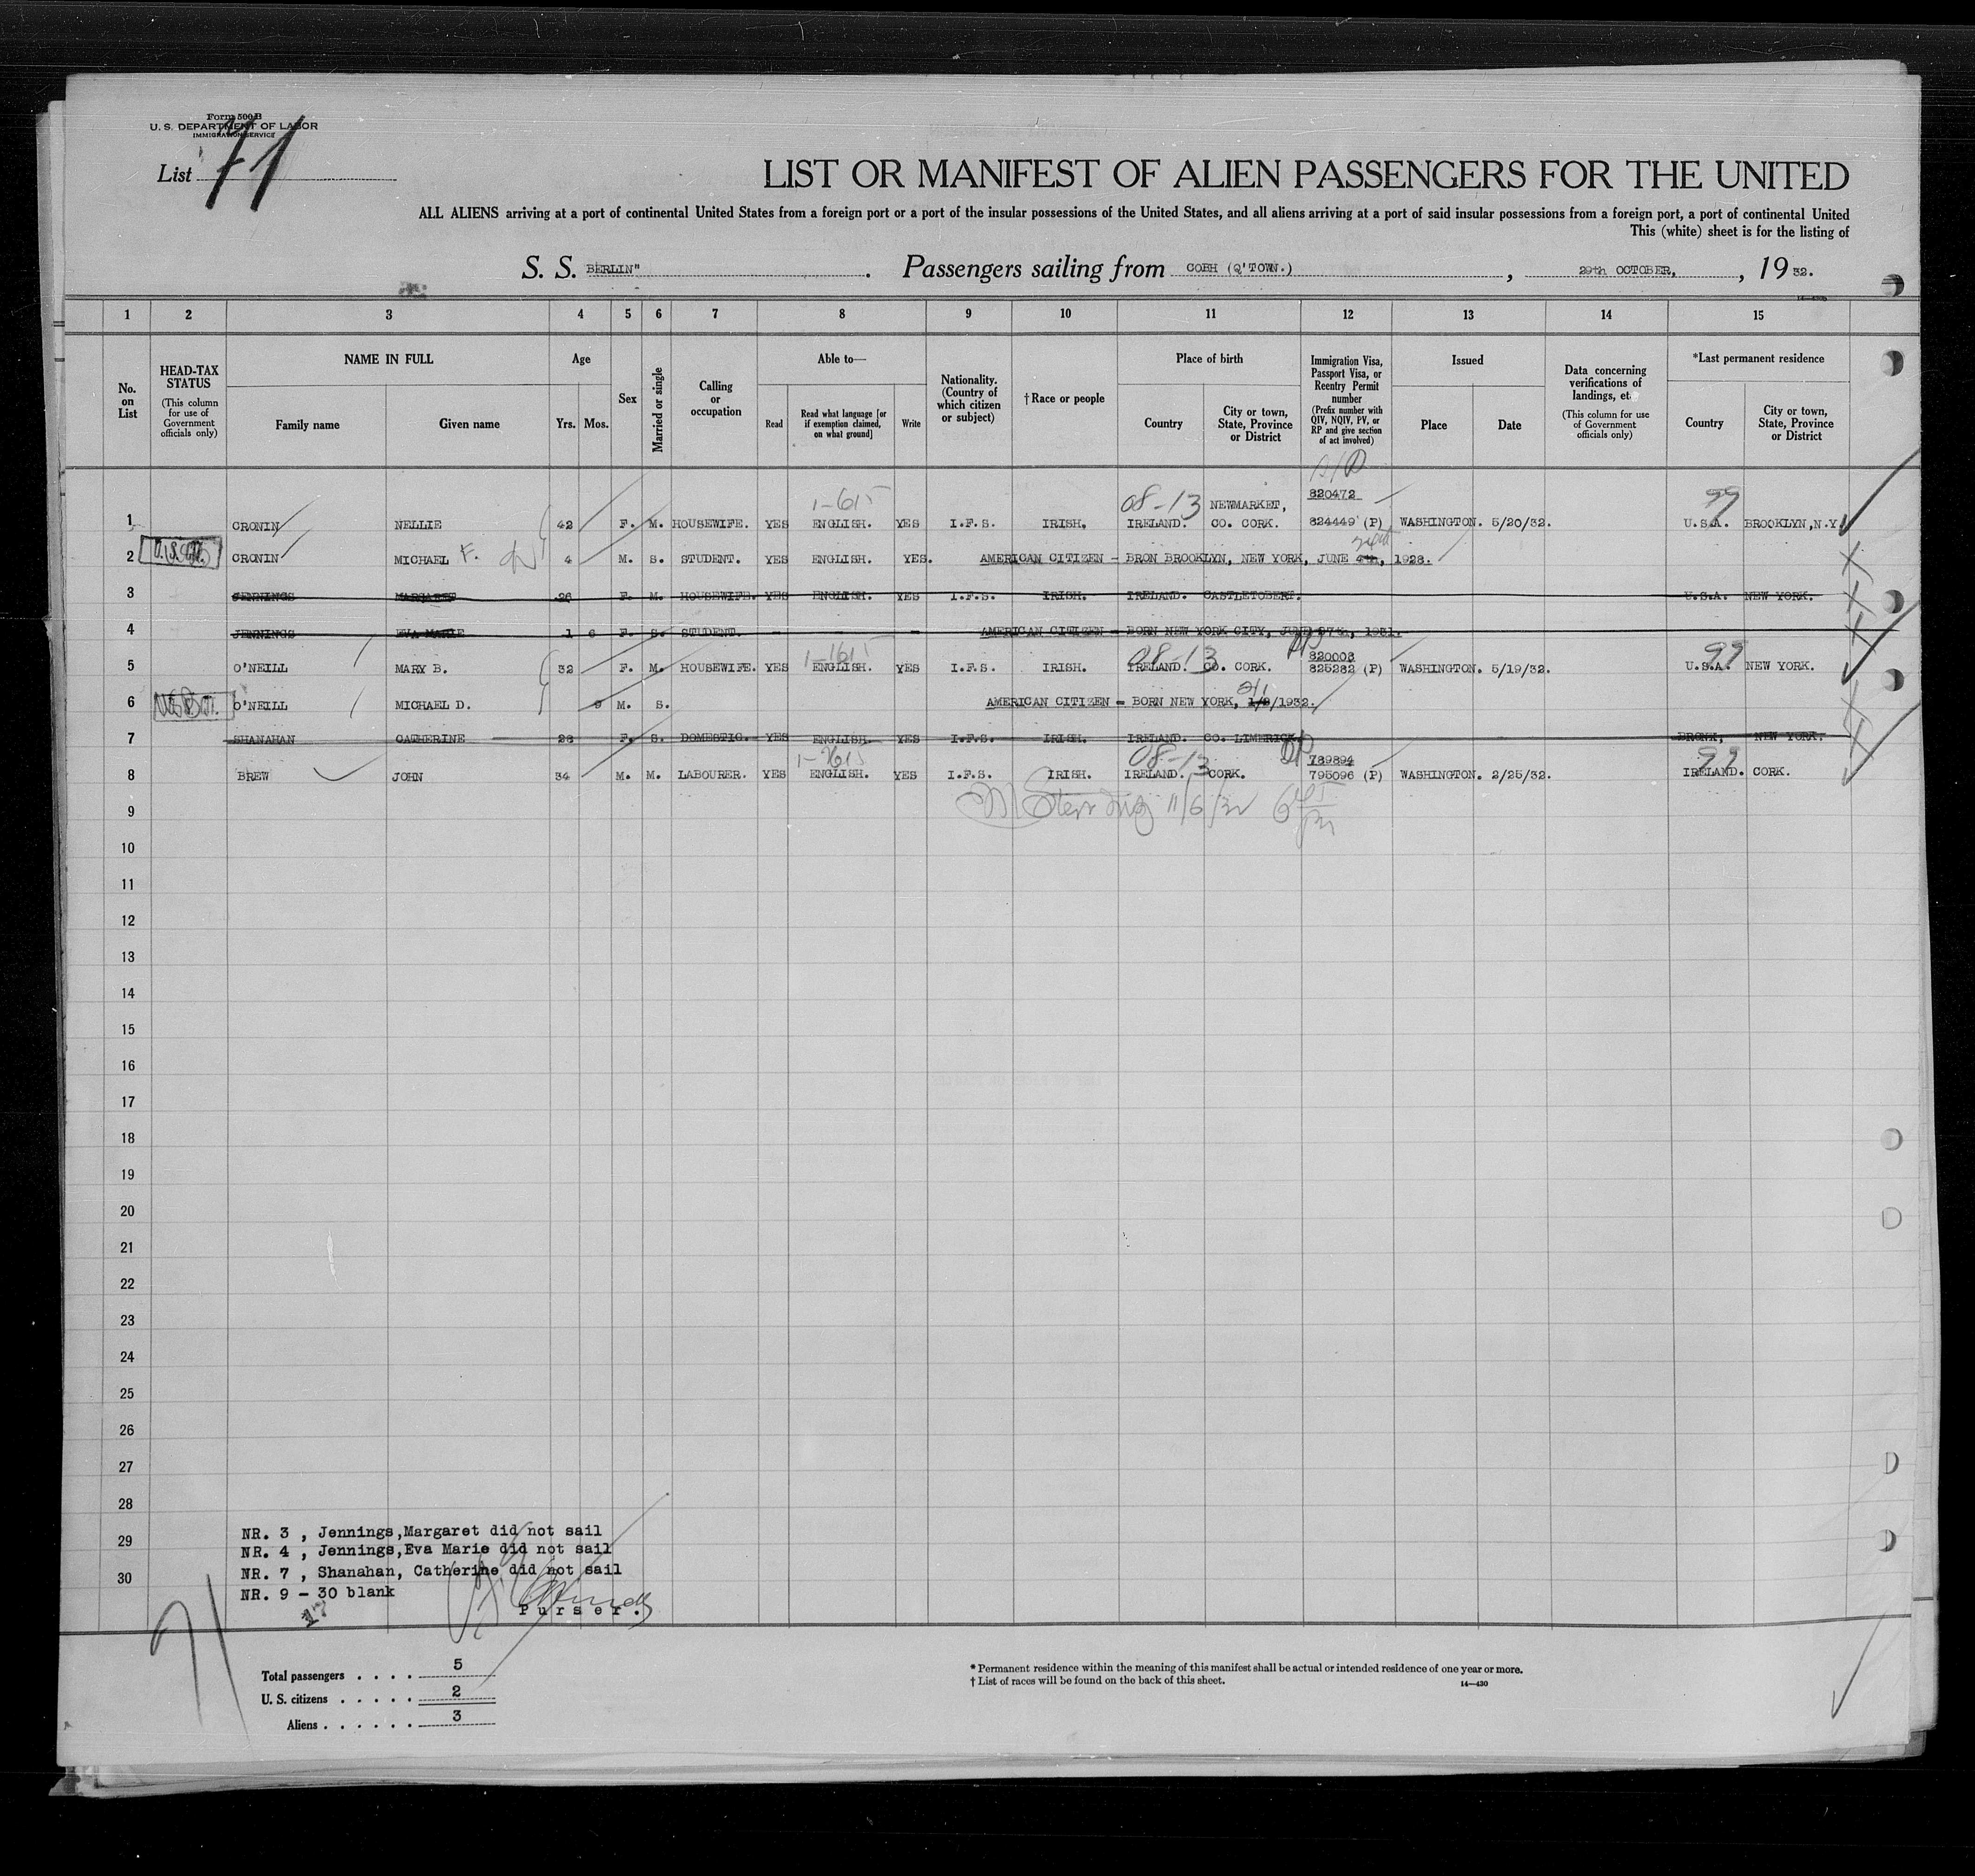 Form 500 B
U. S. DEPARTMENT OF LABOR
IMMIGRATION SERVICE
List 71
LIST OR MANIFEST OF ALIEN PASSENGERS FOR THE UNITED
ALL ALIENS arriving at a port of continental United States from a foreign port or a port of the insular possessions of the United States, and all aliens arriving at a port of said insular possessions from a foreign port, a port of continental United
This (white) sheet is for the listing of
S. S. BERLIN" . Passengers sailing from COBH (Q'TOWN.) , 29th OCTOBER, , 19 32.
1 2 3 4 5 6 7 8 9 10 11 12 13 14 15
No. on List
HEAD-TAX STATUS (This column for use of Government officials only)
NAME IN FULL Family name Given name
Age Yrs. Mos.
Sex
Married or single
Calling or occupation
Able to— Read Read what language [or if exemption claimed, on what ground] Write
Nationality. (Country of which citizen or subject)
† Race or people
Place of birth Country City or town, State, Province or District
Immigration Visa, Passport Visa, or Reentry Permit number (Prefix number with QIV, NQIV, PV, or RP and give section of act involved)
Issued Place Date
Data concerning verifications of landings, etc. (This column for use of Government officials only)
*Last permanent residence Country City or town, State, Province or District
1-615 08-13 NEWMARKET, 820472 99
1 CRONIN NELLIE 42 F. M. HOUSEWIFE. YES ENGLISH. YES I.F.S. IRISH. IRELAND. CO. CORK. 824449 (P) WASHINGTON. 5/20/32. U.S.A. BROOKLYN,N.Y.
2 CRONIN MICHAEL F. 4 M. S. STUDENT. YES ENGLISH. YES. AMERICAN CITIZEN - BRON BROOKLYN, NEW YORK, JUNE 24th, 1928.
3 JENNINGS MARGARET 26 F. M. HOUSEWIFE. YES ENGLISH. YES I.F.S. IRISH. IRELAND. U.S.A. NEW YORK.
4 JENNINGS EVA MARIE 1 6 F. S. STUDENT. - - - AMERICAN CITIZEN - BORN NEW YORK CITY, JUNE 27th, 1931.
1-1615 08-13 820003 99
5 O'NEILL MARY B. 32 F. M. HOUSEWIFE. YES ENGLISH. YES I.F.S. IRISH. IRELAND. CO. CORK. 825282 (P) WASHINGTON. 5/19/32. U.S.A. NEW YORK.
6 O'NEILL MICHAEL D. 9 M. S. AMERICAN CITIZEN - BORN NEW YORK, /1932.
7 SHANAHAN CATHERINE 28 F. S. DOMESTIC. YES ENGLISH. YES I.F.S. IRISH. IRELAND. CO. LIMERICK. BRONX, NEW YORK.
08-13 789894 99
8 BREW JOHN 34 M. M. LABOURER. YES ENGLISH. YES I.F.S. IRISH. IRELAND. CORK. 795096 (P) WASHINGTON. 2/25/32. IRELAND. CORK.
9 11/6/32
10
11
12
13
14
15
16
17
18
19
20
21
22
23
24
25
26
27
28
29
30
NR. 3 , Jennings,Margaret did not sail
NR. 4 , Jennings,Eva Marie did not sail
NR. 7 , Shanahan, Catherine did not sail
NR. 9 - 30 blank
17
Purser.
71
Total passengers . . . . 5
U. S. citizens . . . . . 2
Aliens . . . . . . 3
* Permanent residence within the meaning of this manifest shall be actual or intended residence of one year or more.
† List of races will be found on the back of this sheet.
14—430